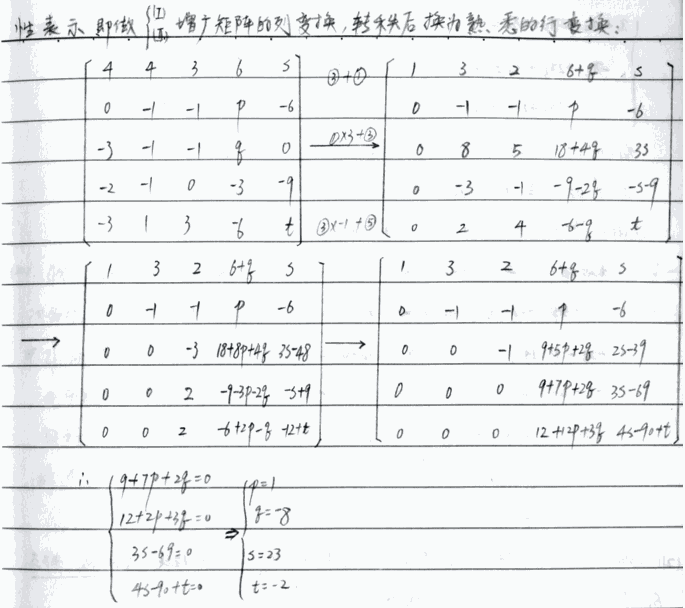 性表示 即做 {(I) (II) 增广矩阵的列变换,转秩后换为熟悉的行变换:
4 4 3 6 s ③+① 1 3 2 6+q s
0 -1 -1 p -6 0 -1 -1 p -6
-3 -1 -1 q 0 ①×3+③ 0 8 5 18+4q 3s
-2 -1 0 -3 -9 0 -3 -1 -9-2q -s-9
-3 1 3 -6 t ③×-1+⑤ 0 2 4 -6-q t
1 3 2 6+q s 1 3 2 6+q s
0 -1 -1 p -6 0 -1 -1 p -6
→ 0 0 -3 18+8p+4q 3s-48 → 0 0 -1 9+5p+2q 2s-39
0 0 2 -9-3p-2q -s+9 0 0 0 9+7p+2q 3s-69
0 0 2 -6+2p-q -12+t 0 0 0 12+12p+3q 4s-90+t
∴ 9+7p+2q=0 p=1
12+2p+3q=0 ⇒ q=-8
3s-69=0 s=23
4s-90+t=0 t=-2